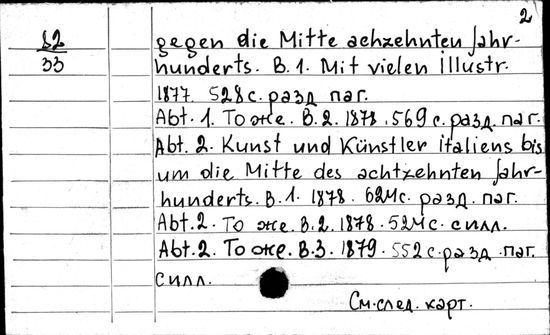 2
82
33
gegen die Mitte achzehnten Jahr-
hunderts. B.1. Mit vielen illustr.
1877. 528 с. разд паг.
Abt. 1. То же. B. 2. 1878. 569 с. разд. паг.
Abt. 2. Kunst und Künstler italiens bis
um die Mitte des achtzehnten Jahr-
hunderts. B. 1. 1878. 624 с. разд. паг.
Abt. 2. То же. B. 2. 1878. 524 с. силл.
Abt. 2. То же. B. 3. 1879. 552 с. разд. паг.
силл.
См. след. карт.